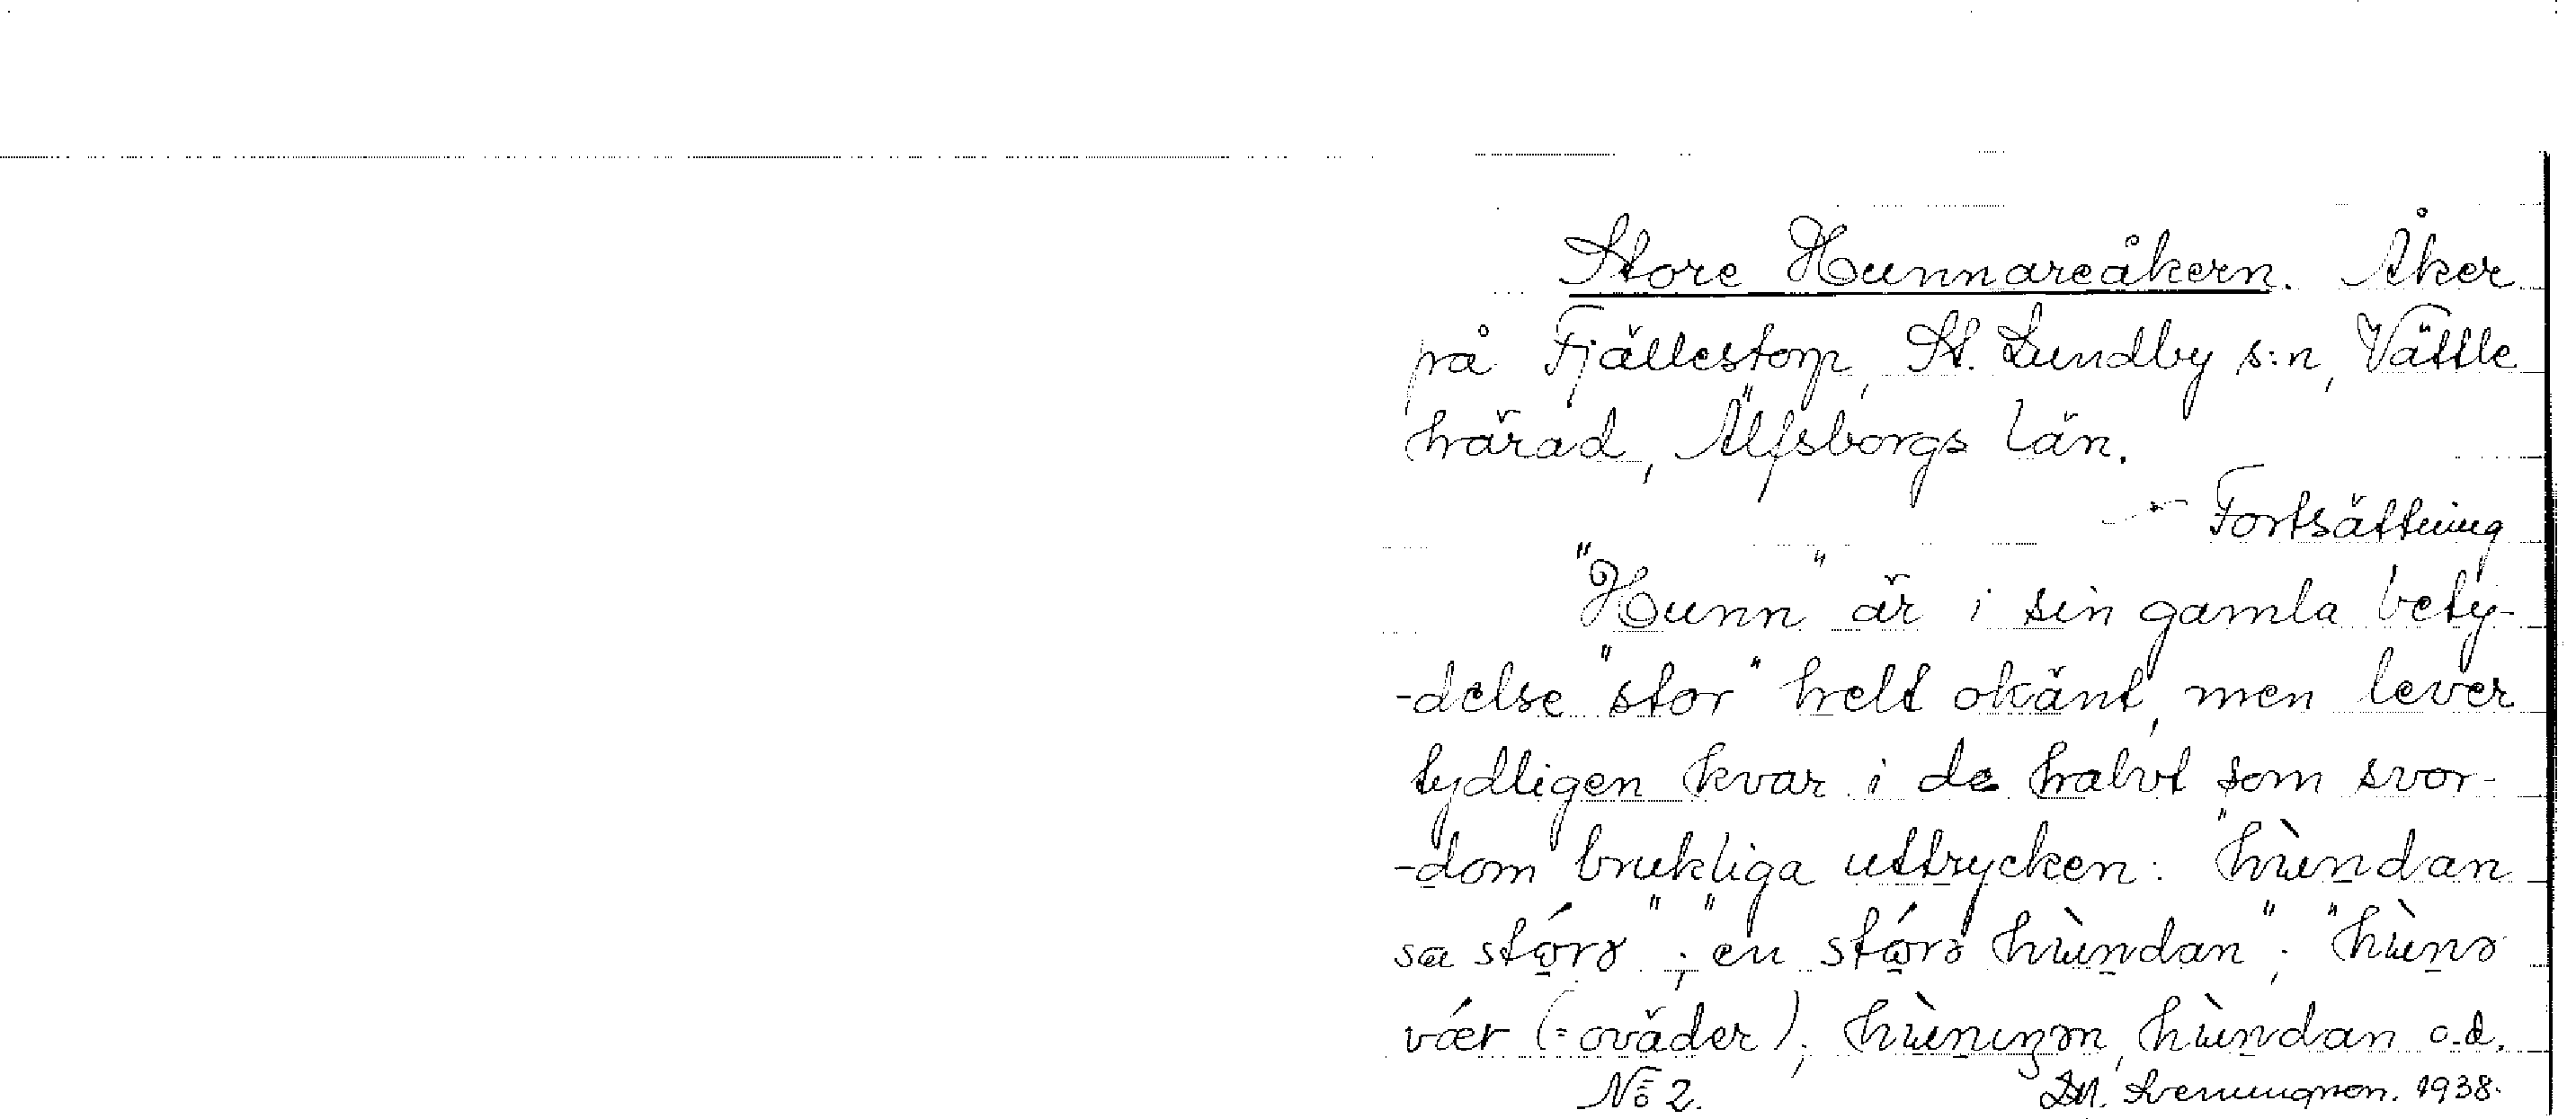 Store Hunnareåkern. Åker
på Fjällestorp, St. Lundby s:n, Vättle
härad, Älfsborgs län.
Fortsättning
"Hunn" är i sin gamla bety-
-delse "stor" helt okänt, men lever
tydligen kvar i de halvt som svor-
-dom brukliga uttrycken: "hùndan
sa stórə"; "en stórə hùndan"; "hùnə
vǽr (= oväder); hùnıŋən, hùndan o.d.
No 2. 1938.